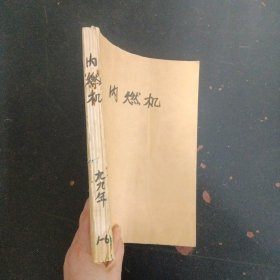 内燃机
内燃机
九九年
1-6